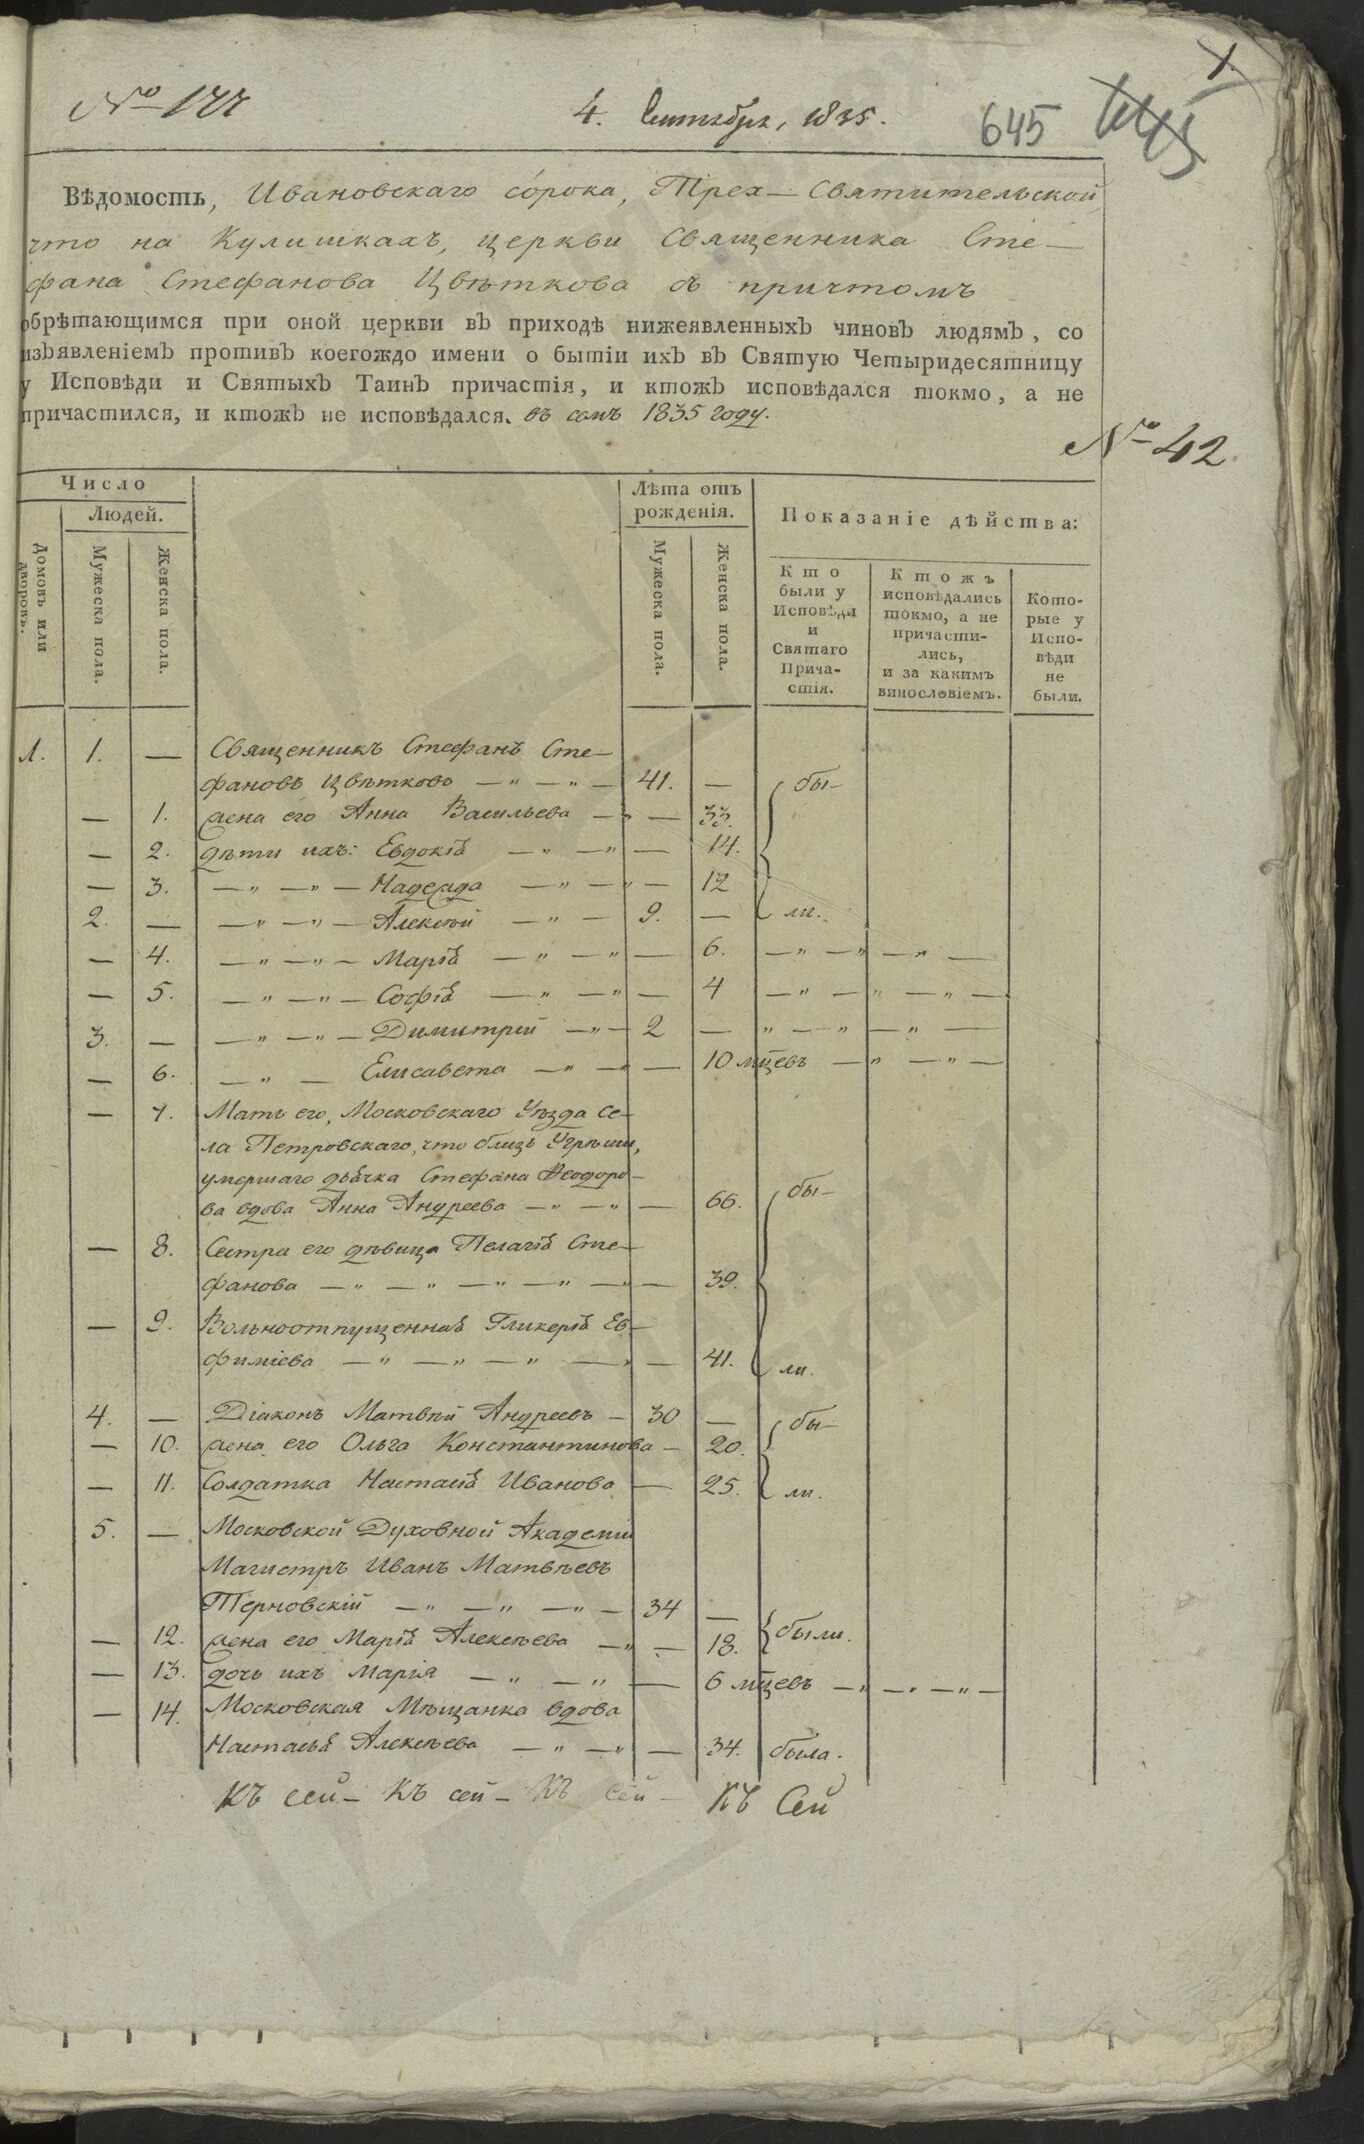 № 177
4. Сентября, 1835.
645
Вѣдомость, Ивановскаго со́рока, Трех-Святительской,
что на Кулишкахъ, церкви Священника Сте-
фана Стефанова Цвѣткова съ причтомъ
обрѣтающимся при оной церкви въ приходѣ нижеявленныхъ чиновъ людямъ, со
изъявленіемъ противъ коегождо имени о бытіи ихъ въ Святую Четыридесятницу
у Исповѣди и Святыхъ Таинъ причастія, и ктожъ исповѣдался токмо, а не
причастился, и ктожъ не исповѣдался. въ семъ 1835 году.
№ 42
Число
Людей.
Домовъ или дворовъ.
Мужеска пола.
Женска пола.
Лѣта отъ
рожденія.
Мужеска пола.
Женска пола.
Показаніе дѣйства:
Кто
были у
Исповѣди
и
Святаго
Прича-
стія.
Ктожъ
исповѣдались
токмо, а не
причасти-
лись,
и за какимъ
винословіемъ.
Кото-
рые у
Испо-
вѣди
не
были.
1. 1. — Священникъ Стефанъ Сте-
фановъ Цвѣтковъ — " — " — 41. — бы-
— 1. жена его Анна Васильева — " — 33.
— 2. дѣти ихъ: Евдокія — " — " — 14.
— 3. — " — " — Надежда — " — " — 12
2. — — " — " — Алексѣй — " — 9. — ли.
— 4. — " — " — Марія — " — " — 6. — " — " — " —
— 5. — " — " — Софія — " — " — 4 — " — " — " —
3. — — " — " — Димитрій — " — 2 — " — " — " —
— 6. — " — Елисавета — " — " — 10 мцевъ — " — " —
— 7. Мать его, Московскаго Уѣзда Се-
ла Петровскаго, что близь Угрѣши,
умершаго дьячка Стефана Ѳеодоро-
ва вдова Анна Андреева — " — " — 66. бы-
— 8. Сестра его дѣвица Пелагія Сте-
фанова — " — " — " — " — " — 39.
— 9. Вольноотпущенная Гликерія Ев-
фиміева — " — " — " — " — 41. ли.
4. — Діаконъ Матвѣй Андреевъ — 30 — бы-
— 10. жена его Ольга Константинова — 20.
— 11. Солдатка Настасія Иванова — 25. ли.
5. — Московской Духовной Академіи
Магистръ Иванъ Матвѣевъ
Терновскій — " — " — " — 34 —
— 12. жена его Марія Алексѣева — " — 18. были.
— 13. дочь ихъ Марія — " — " — 6 мцевъ — " — " — " —
— 14. Московская Мѣщанка вдова
Настасья Алексѣева — " — " — 34. была.
Къ сей - Къ сей - Къ сей - Къ Сей